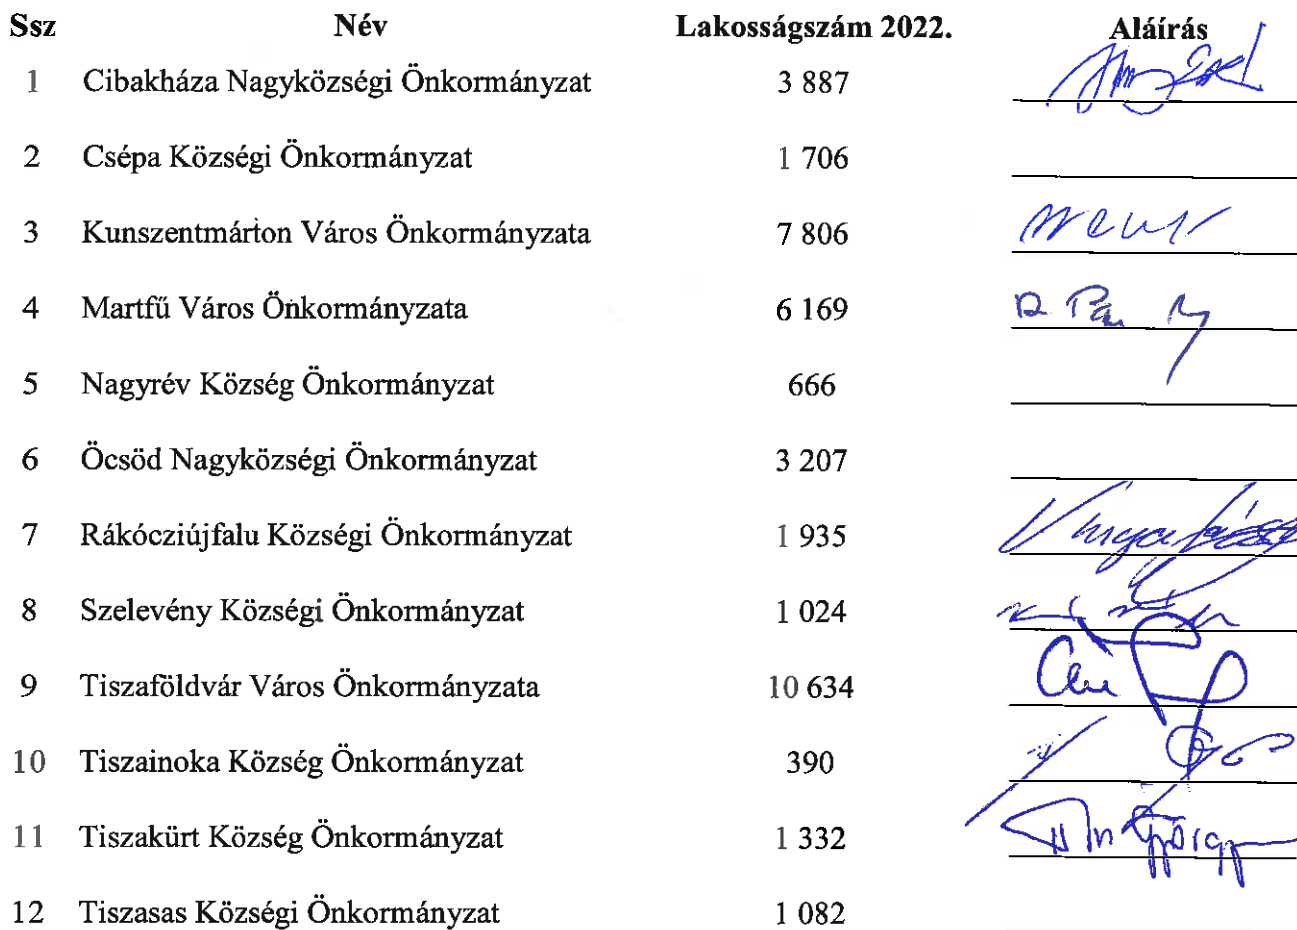 Ssz Név Lakosságszám 2022. Aláírás
1 Cibakháza Nagyközségi Önkormányzat 3 887
2 Csépa Községi Önkormányzat 1 706
3 Kunszentmárton Város Önkormányzata 7 806
4 Martfű Város Önkormányzata 6 169
5 Nagyrév Község Önkormányzat 666
6 Öcsöd Nagyközségi Önkormányzat 3 207
7 Rákócziújfalu Községi Önkormányzat 1 935
8 Szelevény Községi Önkormányzat 1 024
9 Tiszaföldvár Város Önkormányzata 10 634
10 Tiszainoka Község Önkormányzat 390
11 Tiszakürt Község Önkormányzat 1 332
12 Tiszasas Községi Önkormányzat 1 082